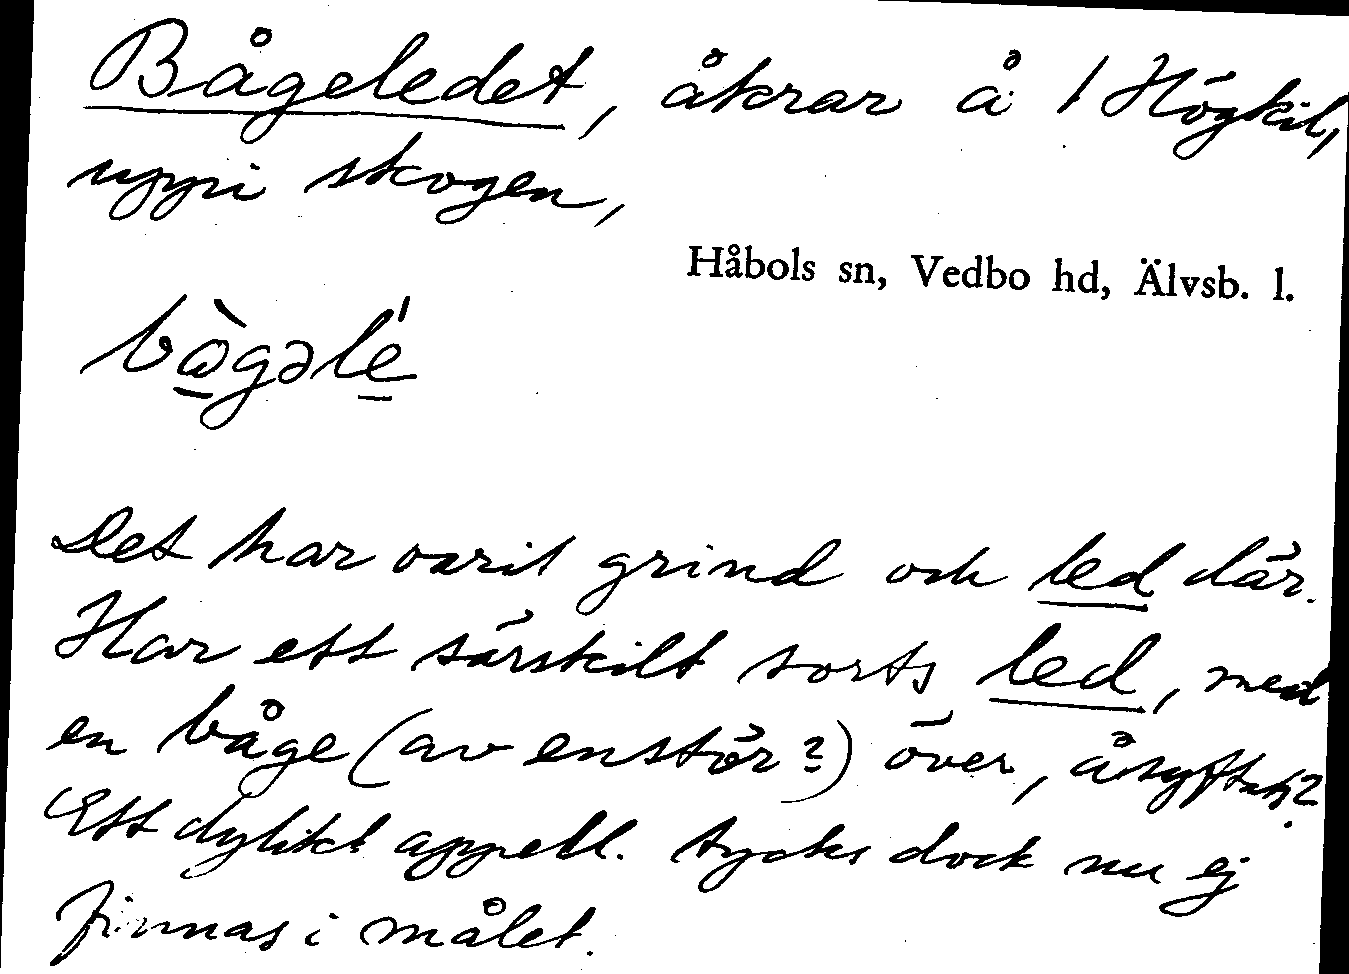 Bågeledet, åkrar å 1 Högkil,
uppi skogen,
Håbols sn, Vedbo hd, Älvsb. l.
bὼgəlé
Det har varit grind och led där.
Har ett särskilt sorts led, med
en båge (av enstör?) över, åsyftats?
Ett dylikt appell. tycks dock nu ej
finnas i målet.